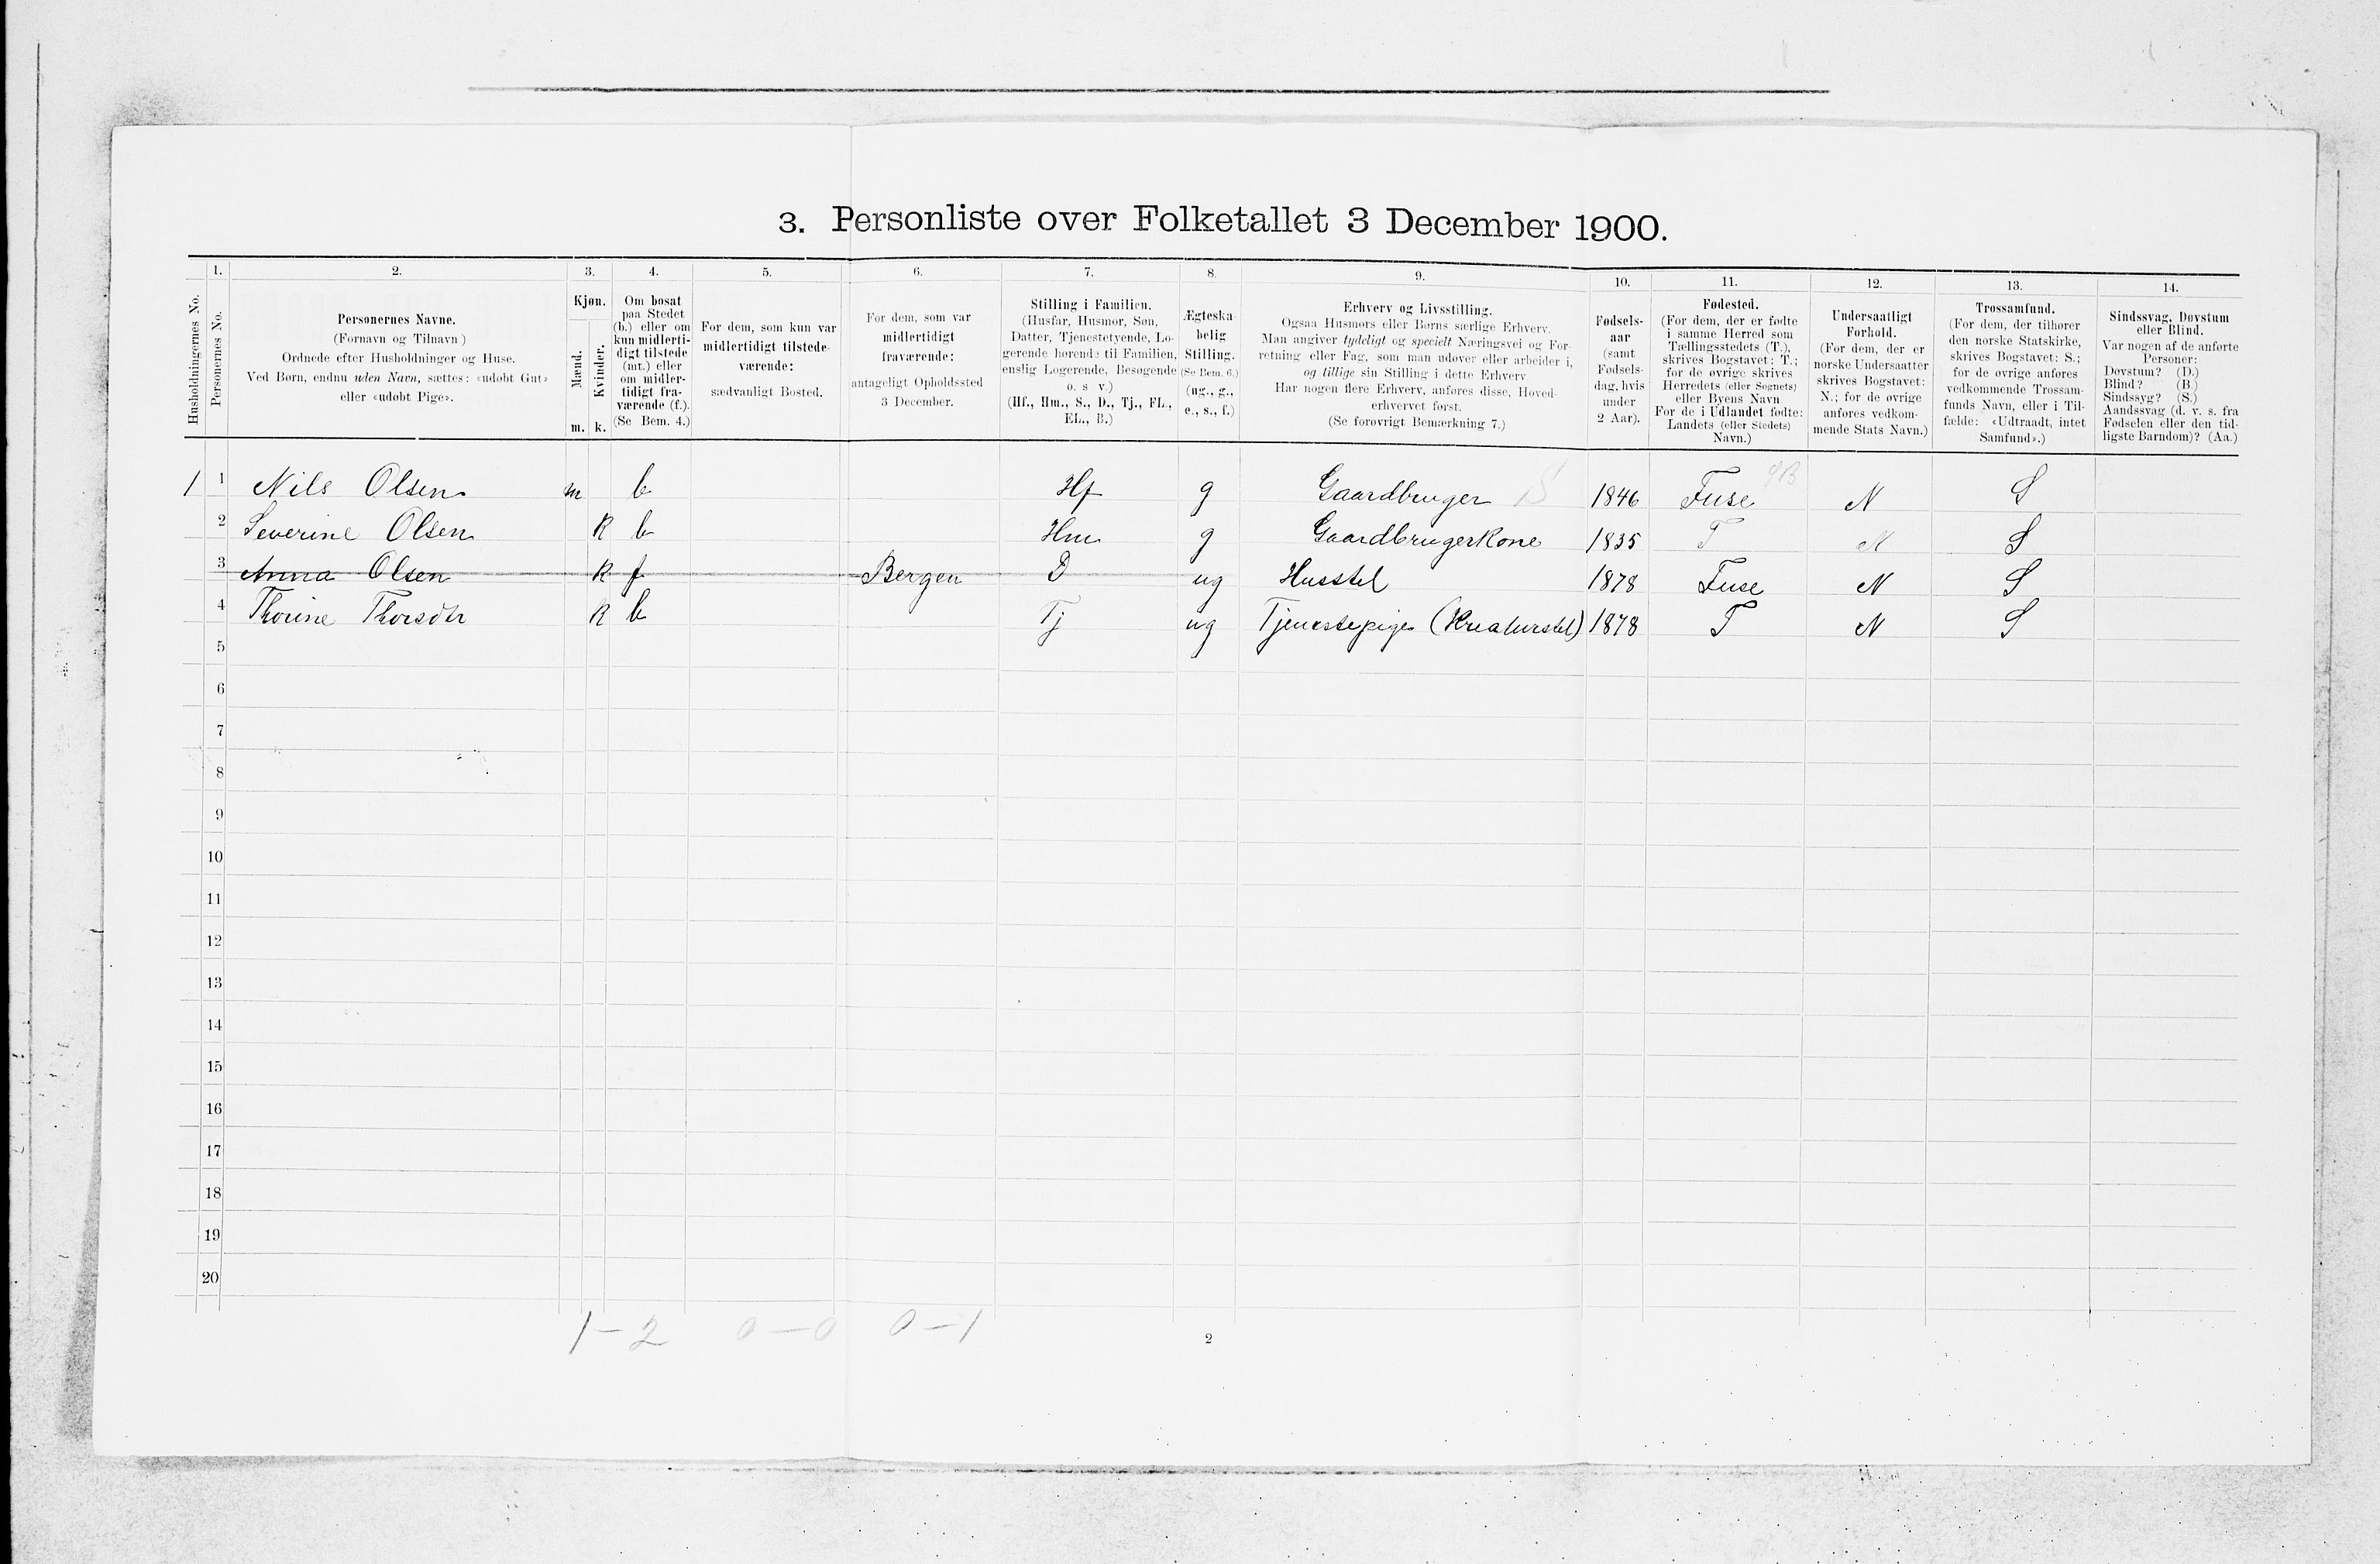 3. Personliste over Folketallet 3 December 1900.
Husholdningernes No.
1.
Personernes No.
2.
Personernes Navne.
(Fornavn og Tilnavn)
Ordnede efter Husholdninger og Huse.
Ved Børn, endnu uden Navn, sættes: «udøbt Gut»
eller «udøbt Pige».
3.
Kjøn.
Mænd.
Kvinder.
m. k.
4.
Om bosat
paa Stedet
(b.) eller om
kun midlerti-
digt tilstede
(mt.) eller
om midler-
tidigt fra-
værende (f.).
(Se Bem. 4.)
5.
For dem, som kun var
midlertidigt tilstede-
værende:
sædvanligt Bosted.
6.
For dem, som var
midlertidigt
fraværende:
antageligt Opholdssted
3 December.
7.
Stilling i Familien.
(Husfar, Husmor, Søn,
Datter, Tjenestetyende, Lo-
gerende hørende til Familien,
enslig Logerende, Besøgende
o. s v.)
(Hf., Hm., S., D., Tj., FL.,
EL., B.)
8.
Ægteska-
belig
Stilling.
(Se Bem. 6.)
(ug., g.,
e., s., f.)
9.
Erhverv og Livsstilling.
Ogsaa Husmors eller Børns særlige Erhverv.
Man angiver tydeligt og specielt Næringsvei og For-
retning eller Fag, som man udøver eller arbeider i,
og tillige sin Stilling i dette Erhverv.
Har nogen flere Erhverv, anføres disse, Hoved-
erhvervet først.
(Se forøvrigt Bemærkning 7.)
10.
Fødsels-
aar
(samt
Fødsels-
dag, hvis
under
2 Aar).
11.
Fødested.
(For dem, der er fødte
i samme Herred som
Tællingsstedets (T.),
skrives Bogstavet: T.;
for de øvrige skrives
Herredets (eller Sognets)
eller Byens Navn
For de i Udlandet fødte:
Landets (eller Stedets)
Navn.)
12.
Undersaatligt
Forhold.
(For dem, der er
norske Undersaatter
skrives Bogstavet:
N.; for de øvrige
anføres vedkom-
mende Stats Navn.)
13.
Trossamfund.
(For dem, der tilhører
den norske Statskirke,
skrives Bogstavet: S.;
for de øvrige anføres
vedkommende Trossam-
funds Navn, eller i Til-
fælde: «Udtraadt, intet
Samfund».)
14.
Sindssvag, Døvstum
eller Blind.
Var nogen af de anførte
Personer:
Døvstum? (D.)
Blind? (B.)
Sindssyg? (S.)
Aandssvag (d. v. s. fra
Fødselen eller den tid-
ligste Barndom)? (Aa.)
1 1 Nils Olsen m b Hf g Gaardbruger S 1846 Fuse N S
2 Severine Olsen K b Hm g Gaardbrugerkone 1835 T N S
3 Anna Olsen K f Bergen D ug Husstel 1878 Fuse N S
4 Thorine Thorsdtr K b Tj ug Tjenestepige (Kreaturstel) 1878 T N S
5
6
7
8
9
10
11
12
13
14
15
16
17
18
19
20
1 – 2 0 – 0 0 – 1
2